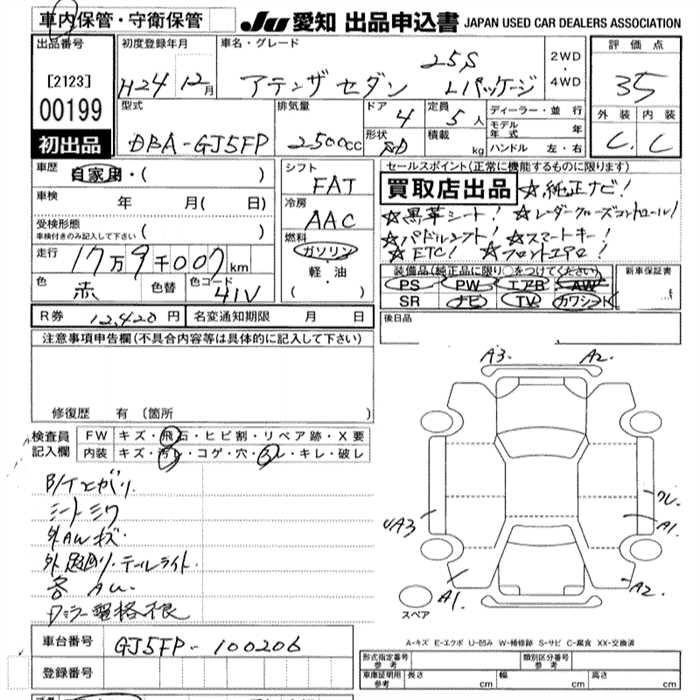 車内保管・守衛保管
JU 愛知 出品申込書 JAPAN USED CAR DEALERS ASSOCIATION
出品番号
[2123]
00199
初出品
初度登録年月
H24年12月
車名・グレード
アテンザセダン 25S Lパッケージ
2WD
・
4WD
評価点
3.5
外装 内装
C. C
型式
DBA-GJ5FP
排気量
2500cc
ドア 4
形状 SD
定員 5人
積載 kg
ディーラー・並行
モデル年式 年
ハンドル 左・右
車歴
自家用・( )
車検 年 月( 日)
受検形態
車検付きのみ記入して下さい
走行 17万9千007km
色 赤 色替 色コード 41V
R券 12,420円
名変通知期限 月 日
シフト
FAT
冷房
AAC
燃料
ガソリン
軽・油
( )
セールスポイント(正常に機能するものに限ります)
買取店出品 ☆純正ナビ!
☆黒革シート! ☆レーダークルーズコントロール!
☆パドルシフト! ☆スマートキー!
☆ETC! ☆フロントエアロ!
装備品(純正品に限り○をつけてください)
PS PW エアB AW
SR ナビ TV カワシート
新車保証書
後日品
注意事項申告欄(不具合内容等は具体的に記入して下さい)
修復歴 有 (箇所 )
検査員
記入欄
FW キズ・飛石・ヒビ割・リペア跡・X要
内装 キズ・汚レ・コゲ・穴・スレ・キレ・破レ
B/Tとがり
シートシワ
外AWキズ
外 足廻り・テールライト・
各 AU.
ドアミラー電格不良
A3. A2.
UA3
クレ.
A1.
A1.
A2.
スペア
A-キズ E-エクボ U-凹み W-補修跡 S-サビ C-腐食 XX-交換済
車台番号 GJ5FP-100206
登録番号
形式指定番号
参考
類別区分番号
参考
車庫証明用
参考
長さ cm 幅 cm 高さ cm